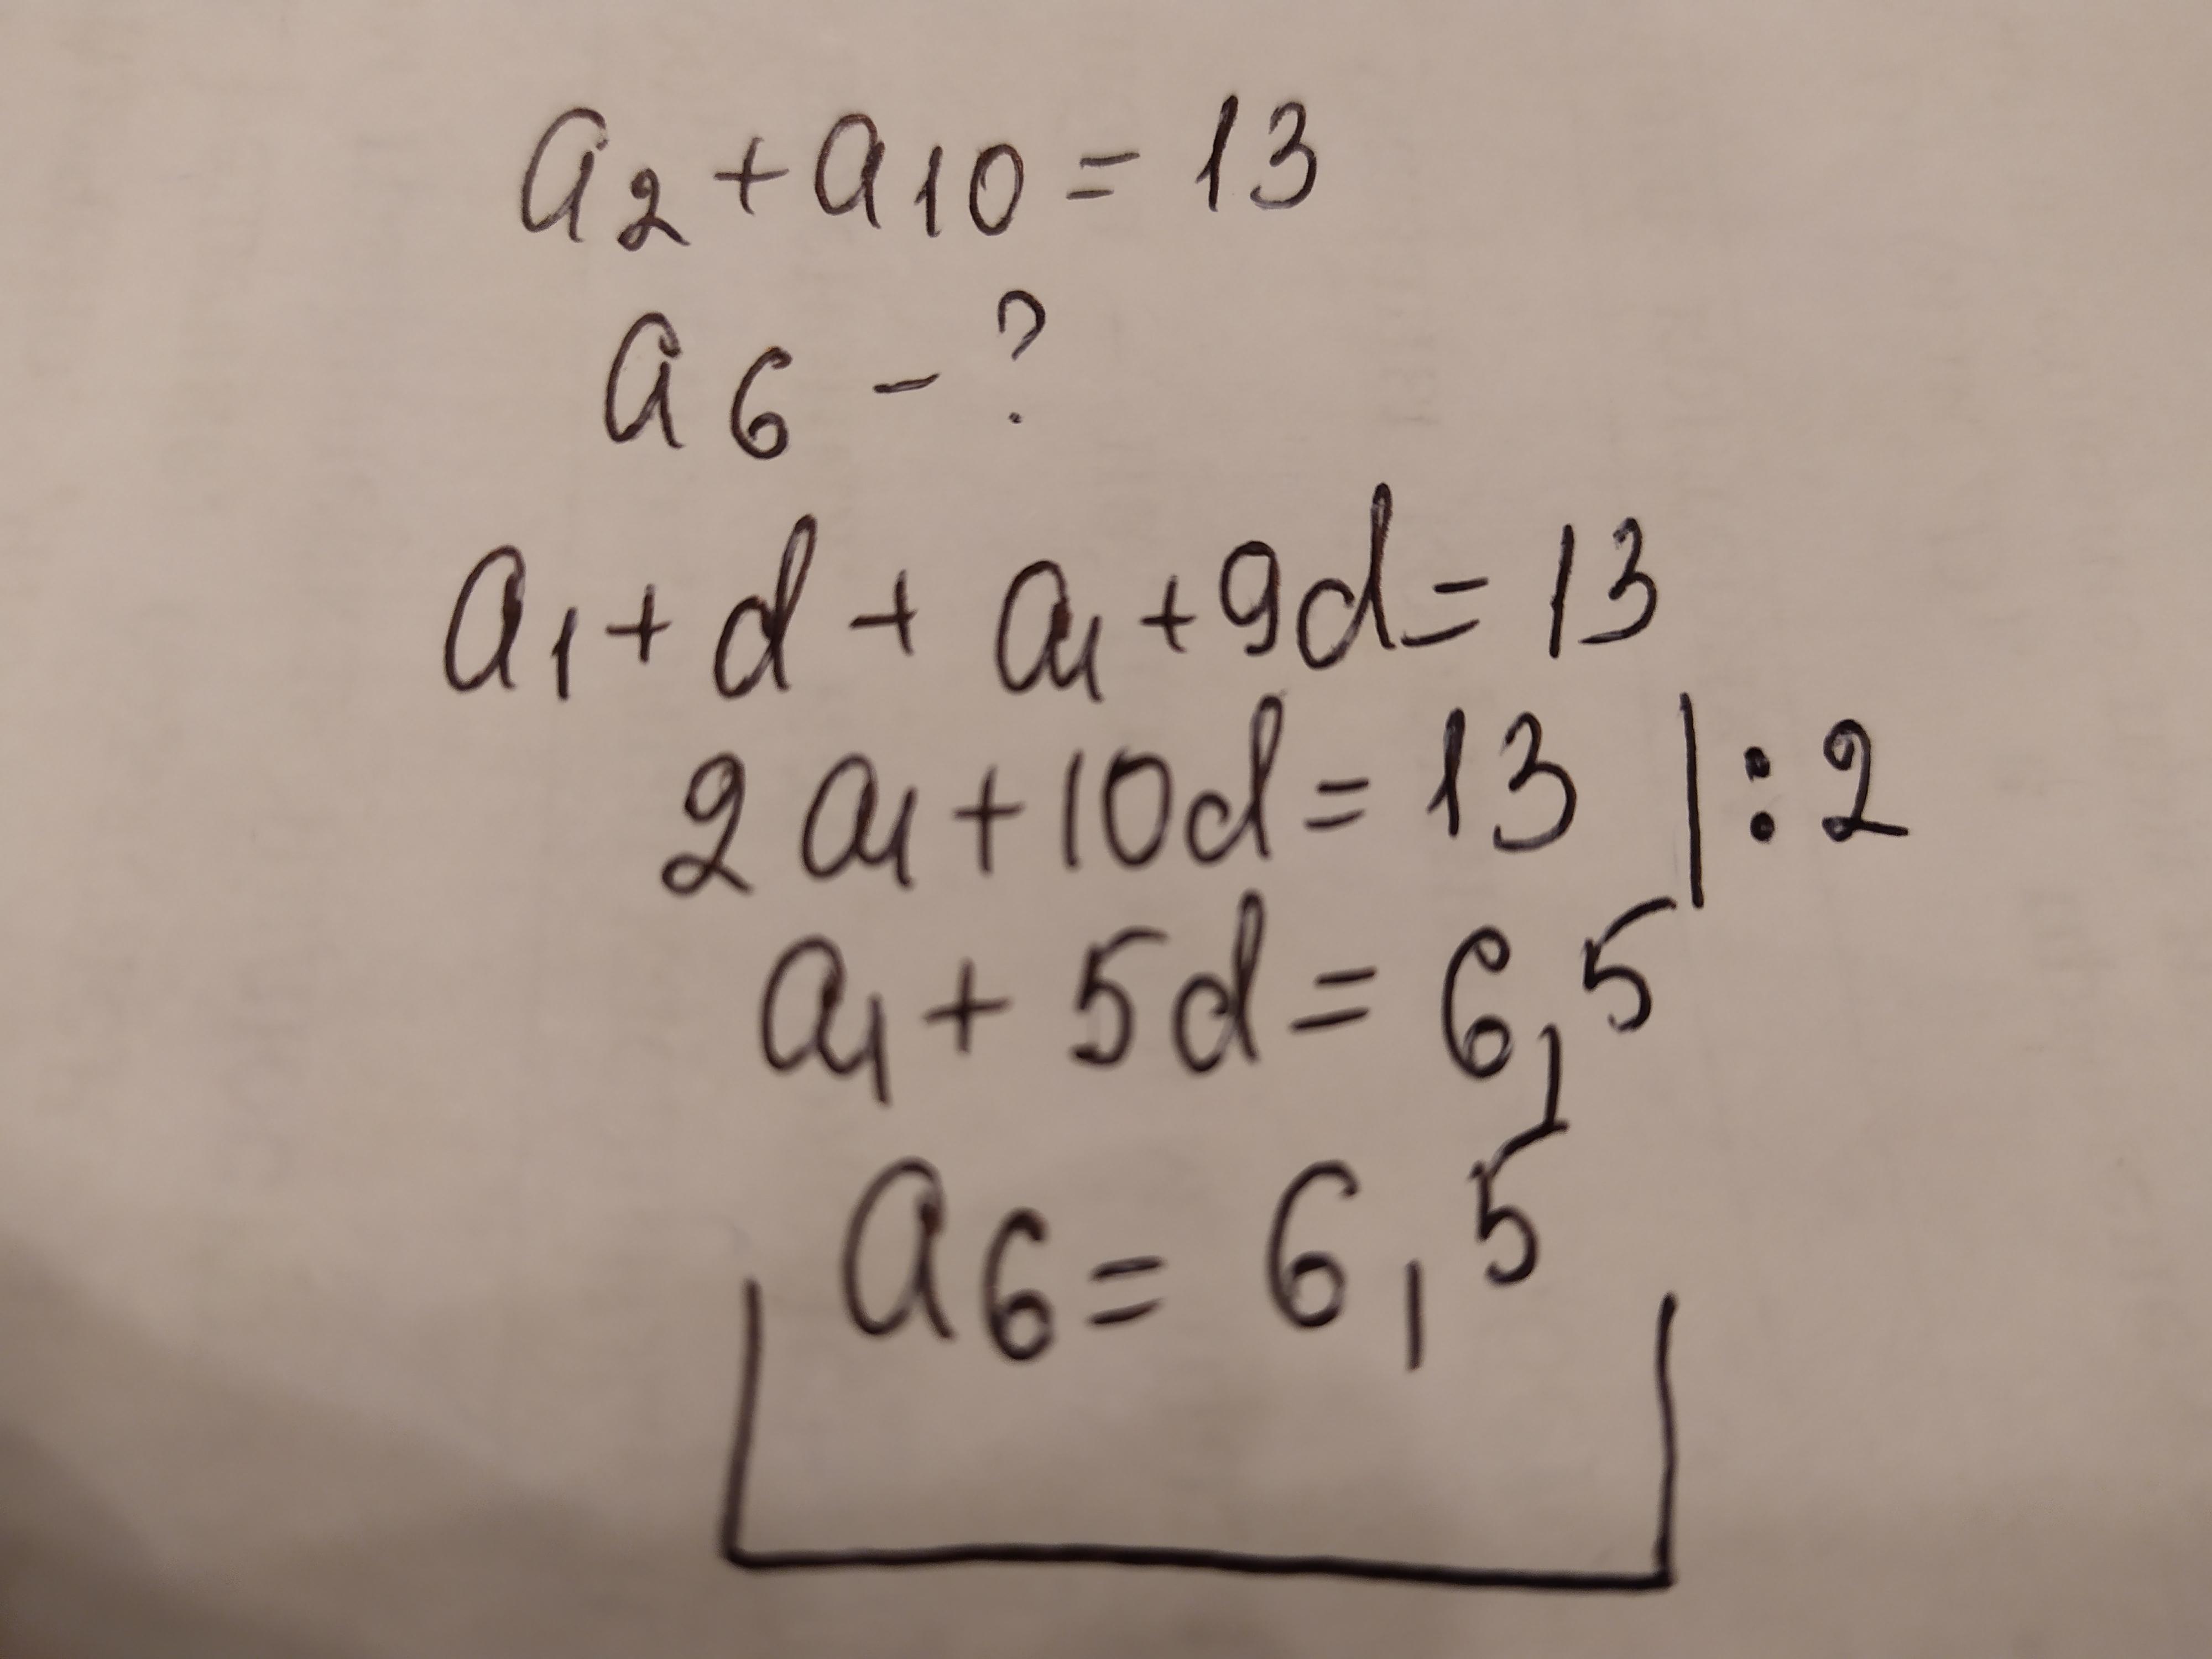 a₂ + a₁₀ = 13
a₆ - ?
a₁ + d + a₁ + 9d = 13
2a₁ + 10d = 13 | : 2
a₁ + 5d = 6,5
a₆ = 6,5